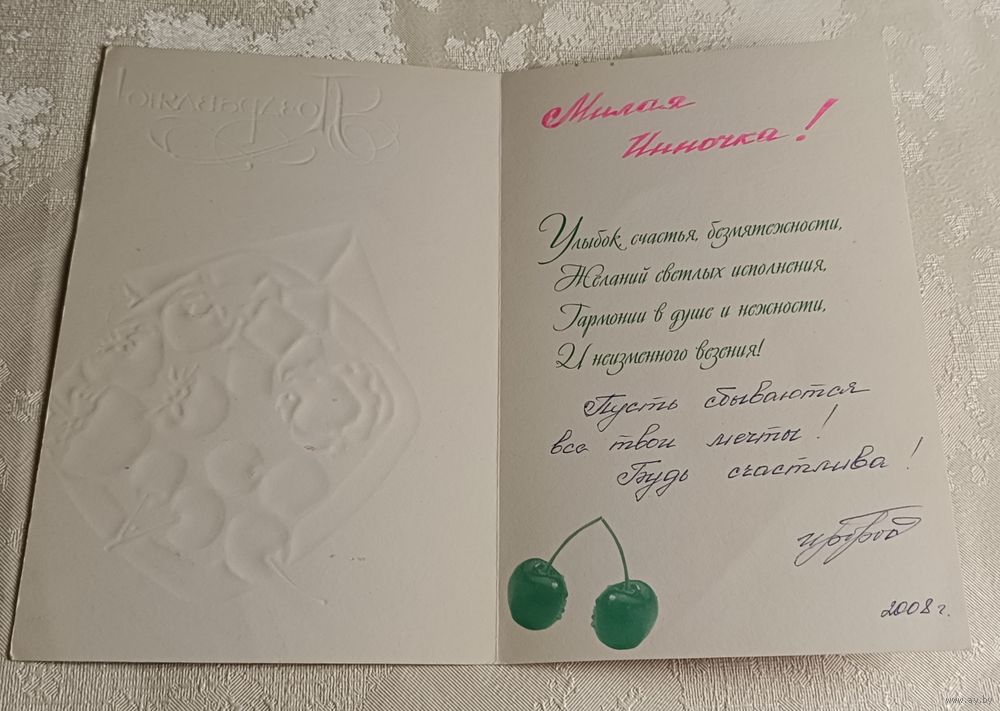 Поздравляю!
Милая
Инночка!
Улыбок, счастья, безмятежности,
Желаний светлых исполнения,
Гармонии в душе и нежности,
И неизменного везения!
Пусть сбываются
все твои мечты!
Будь счастлива!
2008 г.
www.ay.by